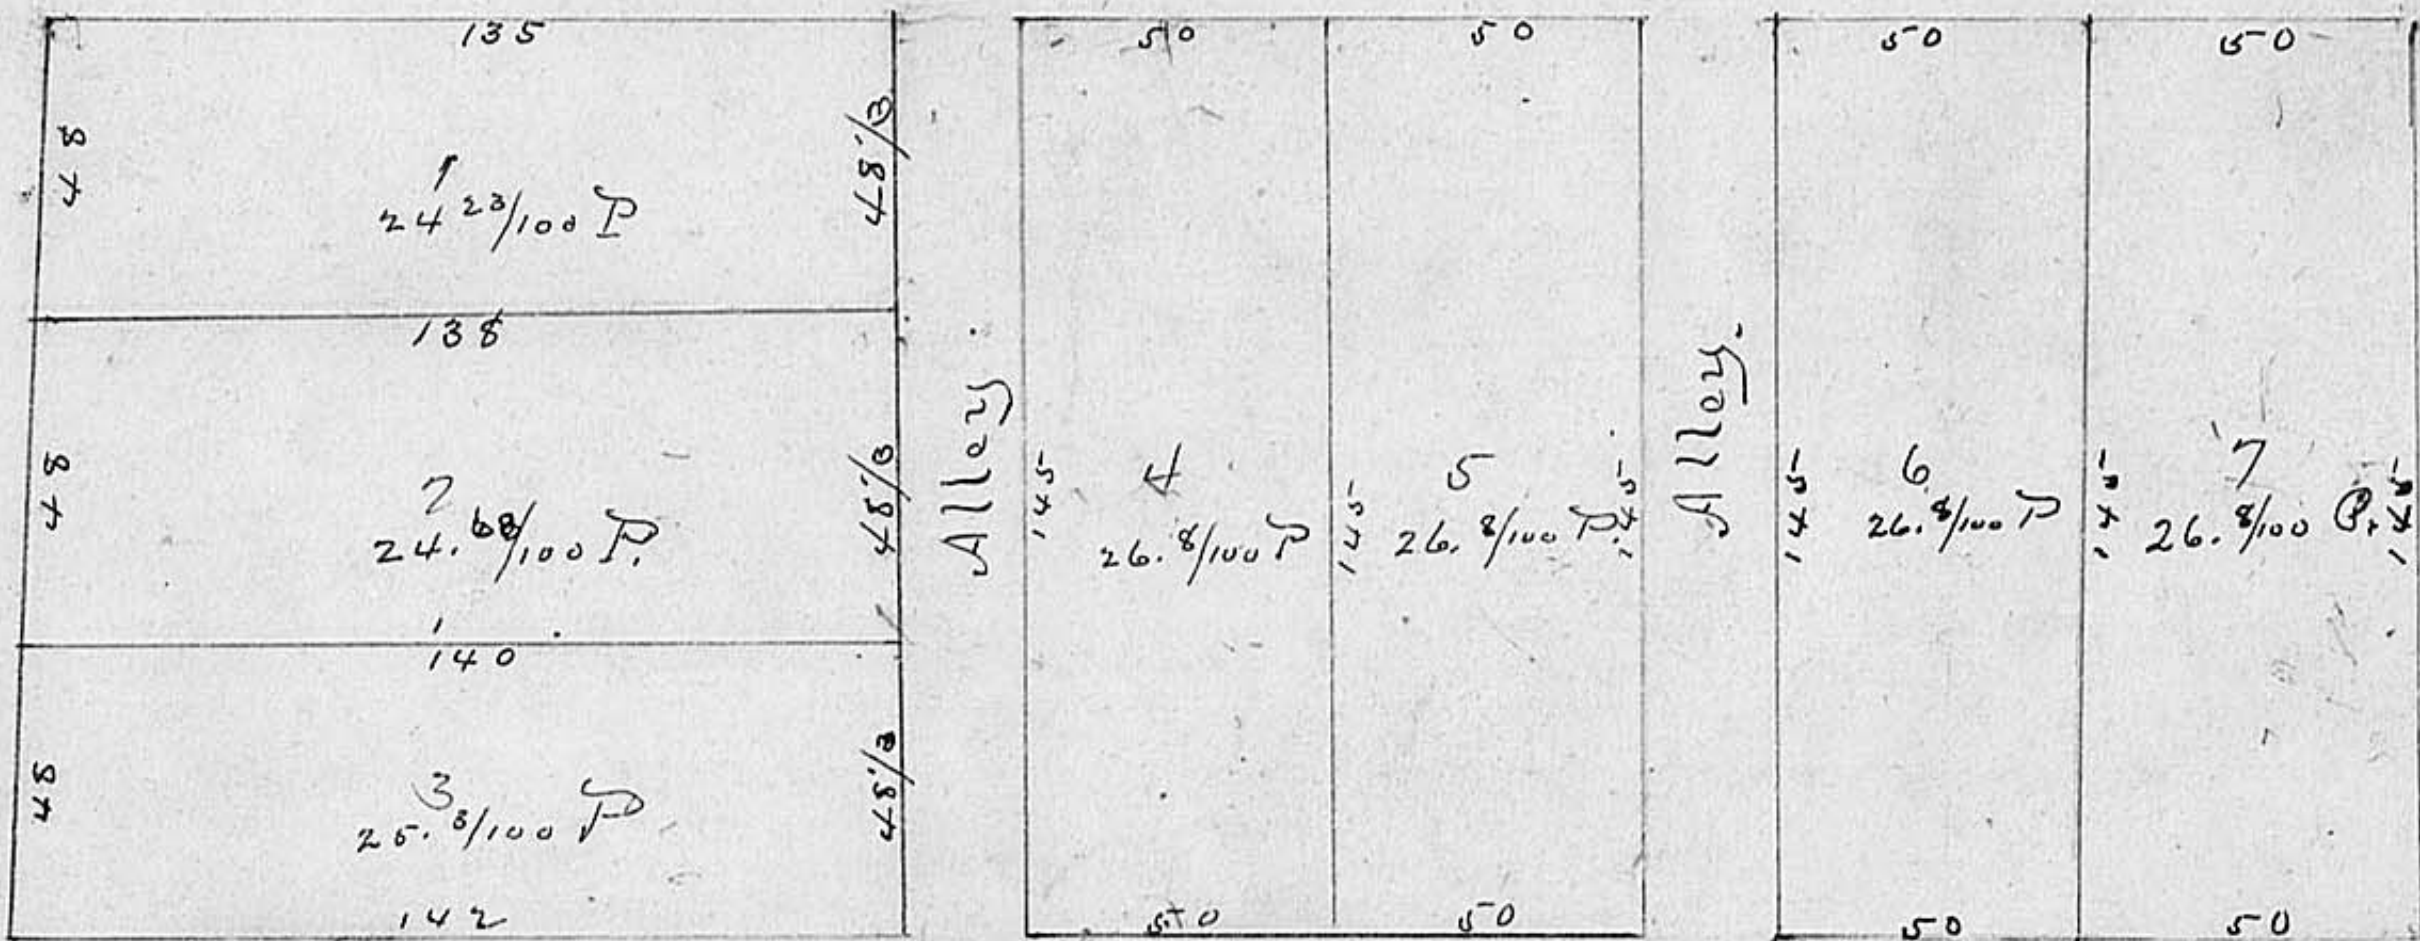 135
48
1
24 23/100 P
48 1/3
138
48
2
24. 68/100 P.
48 1/3
140
48
3
25. 3/100 P
48 1/3
142
Alley.
50
145
4
26. 8/100 P
145
50
50
5
26. 8/100 P.
145
50
Alley.
50
145
6
26. 8/100 P
145
50
50
7
26. 8/100 P.
145
50